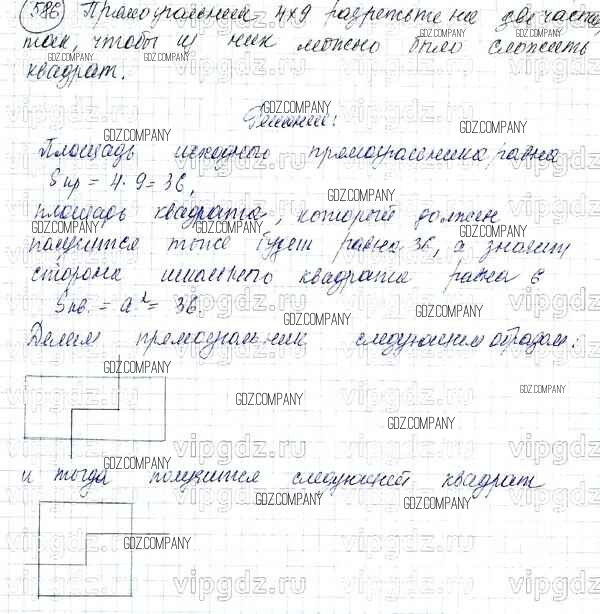 586 Прямоугольник 4х9 разрежьте на две части,
так, чтобы из них можно было сложить
квадрат.
Решение:
Площадь исходного прямоугольника, равна
Sпр = 4·9 = 36,
площадь квадрата, который должен
получится тоже будет равна 36, а значит
сторона искомого квадрата равна 6
Sкв. = a² = 36.
Делим прямоугольник следующим образом:
и тогда получится следующий квадрат
GDZ.COMPANY
vipgdz.ru